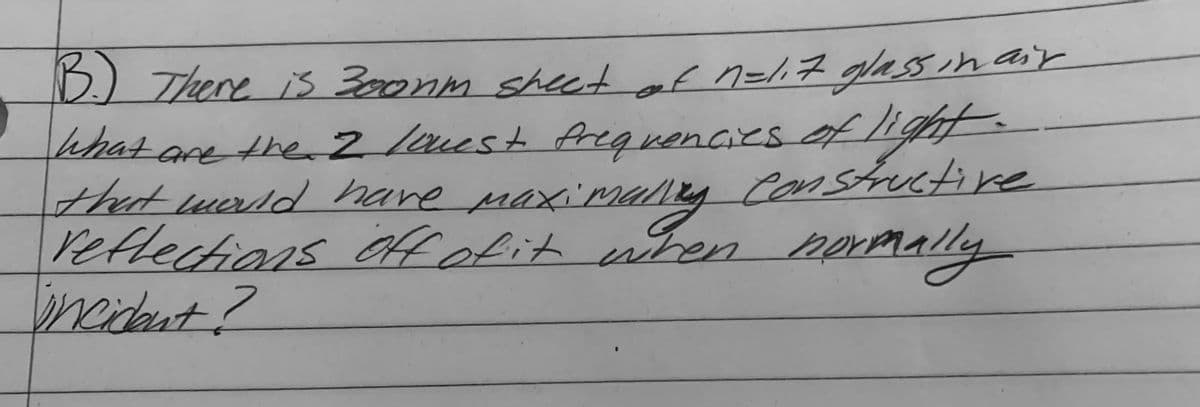 B.) There is 300nm sheet of n=1.7 glass in air
what are the 2 lowest frequencies of light.
that would have maximally constructive
reflections off of it when normally
incident?